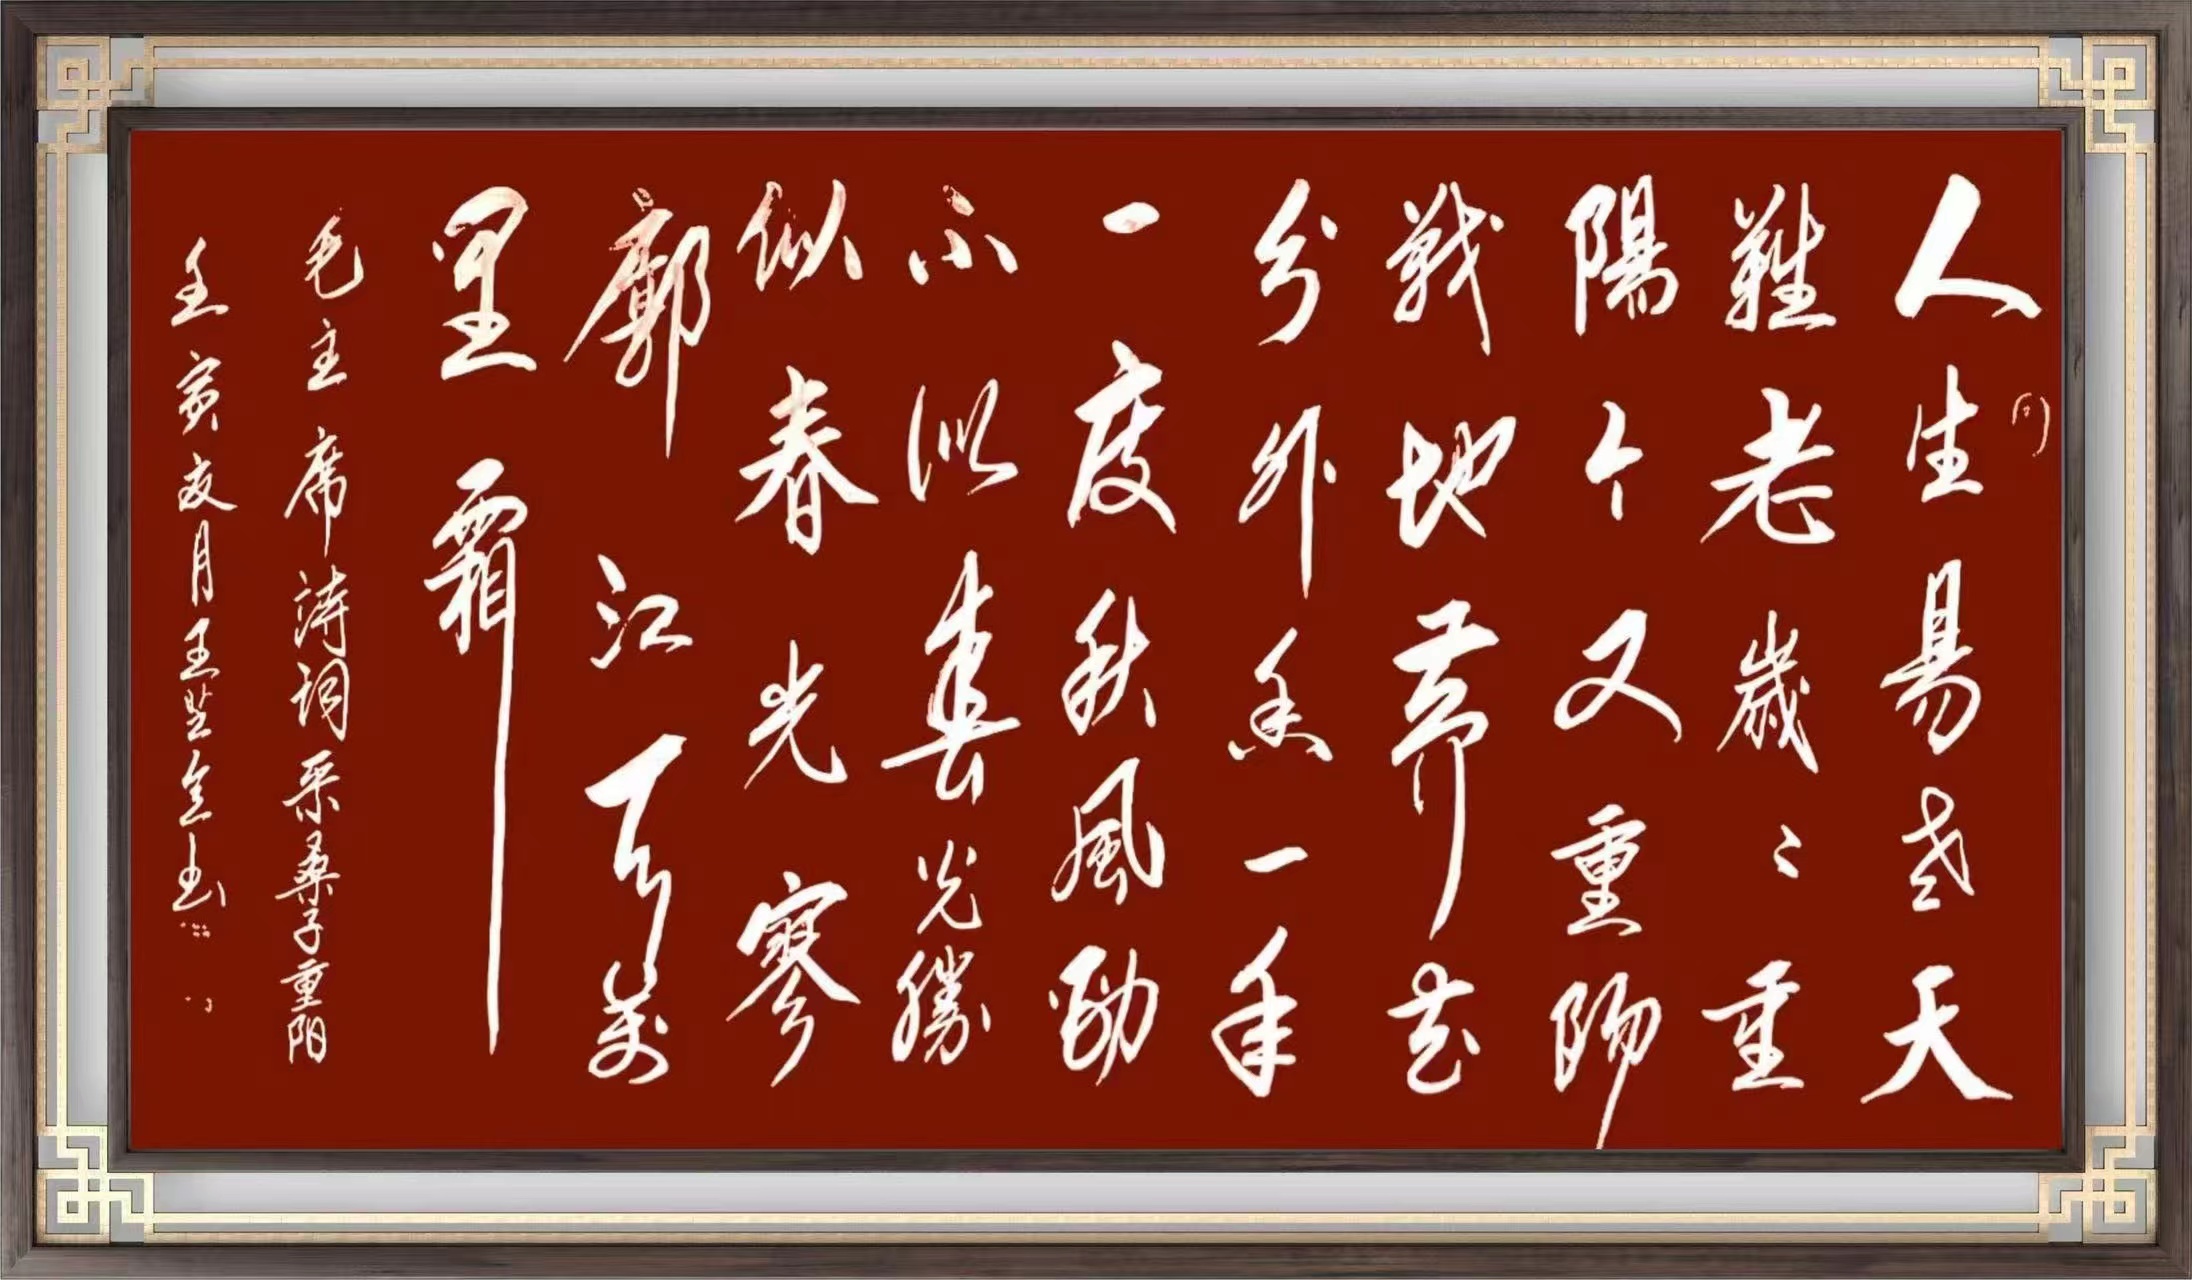 人生易老天
難老歲歲重
陽今又重陽
戰地黃花
分外香一年
一度秋風勁
不似春光勝
似春光寥
廓江天萬
里霜
毛主席詩詞采桑子重阳
壬寅夏月王金书